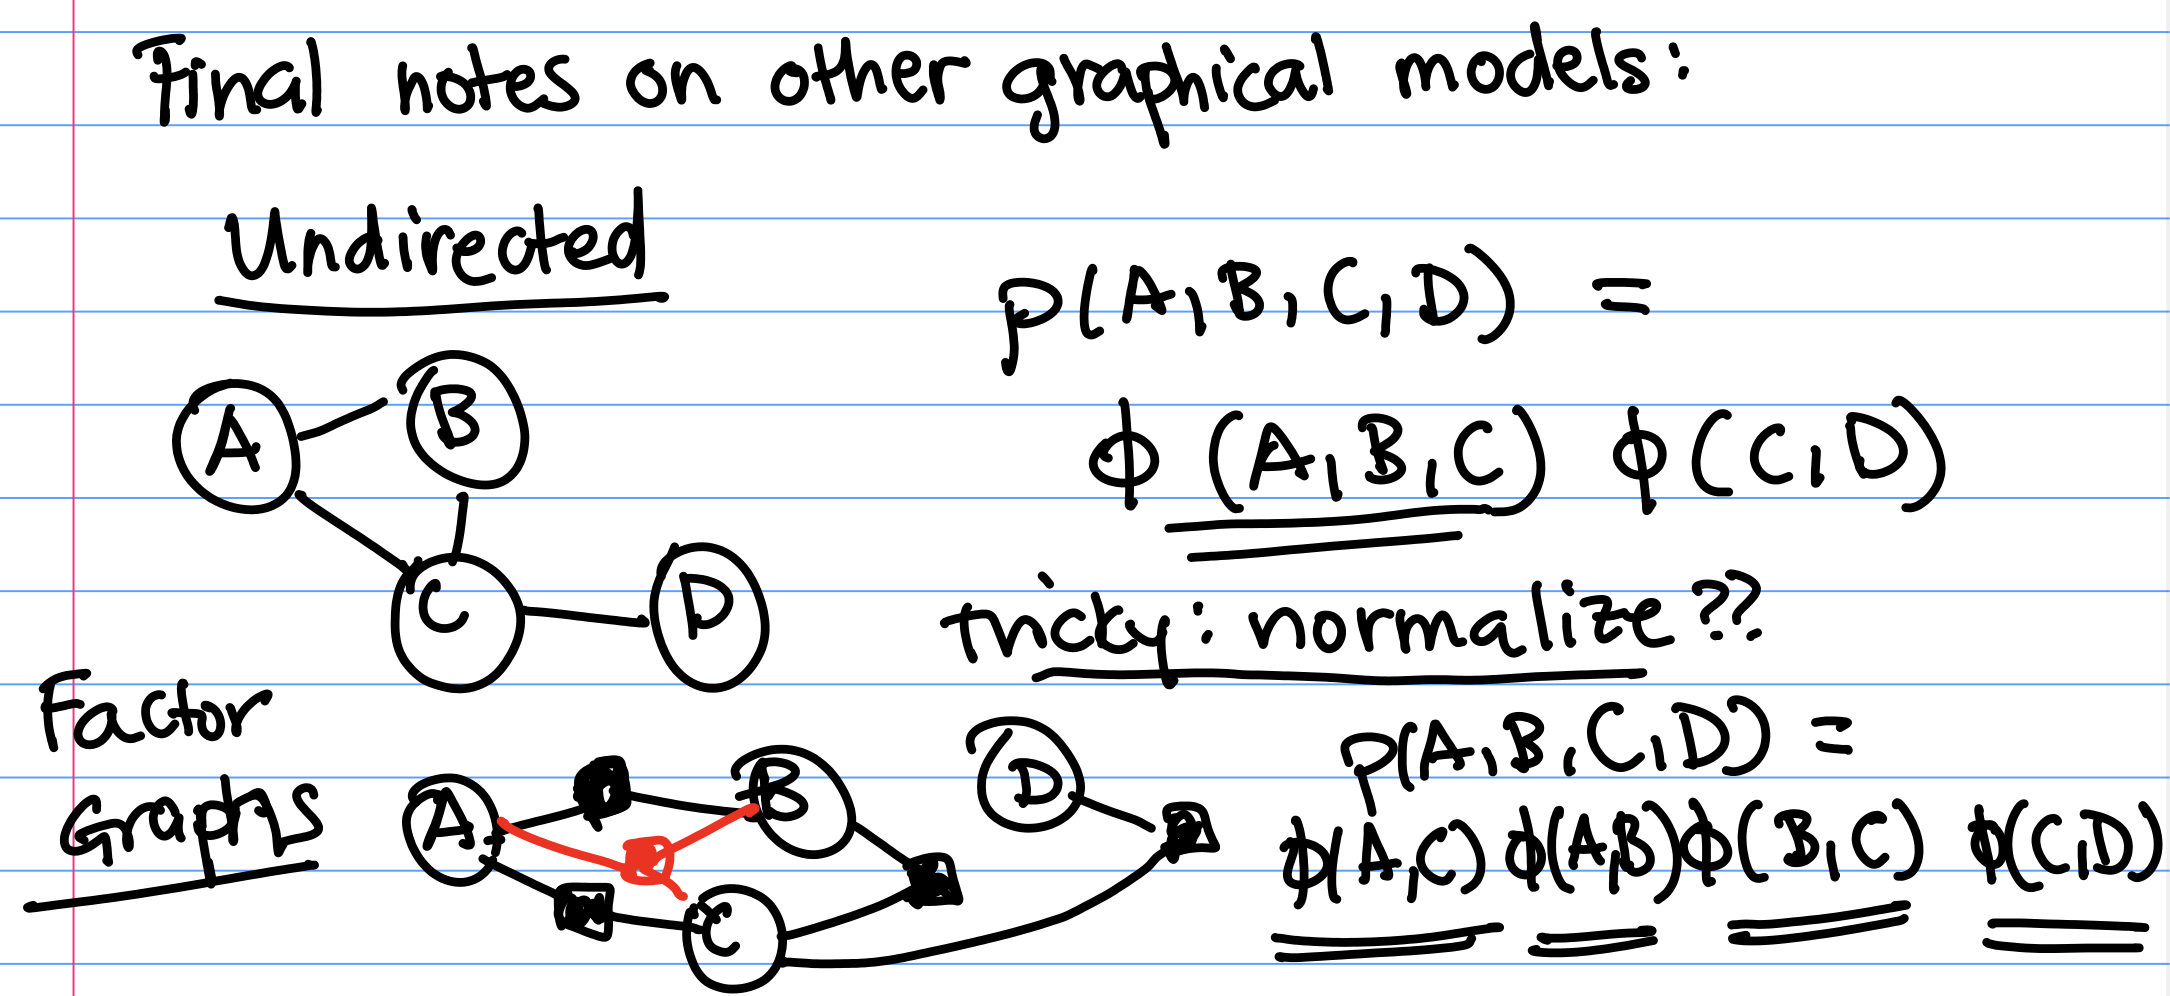 Final notes on other graphical models:
Undirected
p(A,B,C,D) =
A B
ϕ(A,B,C) ϕ(C,D)
C D
tricky: normalize??
Factor
Graphs
A B D
C
p(A,B,C,D) =
ϕ(A,C) ϕ(A,B) ϕ(B,C) ϕ(C,D)